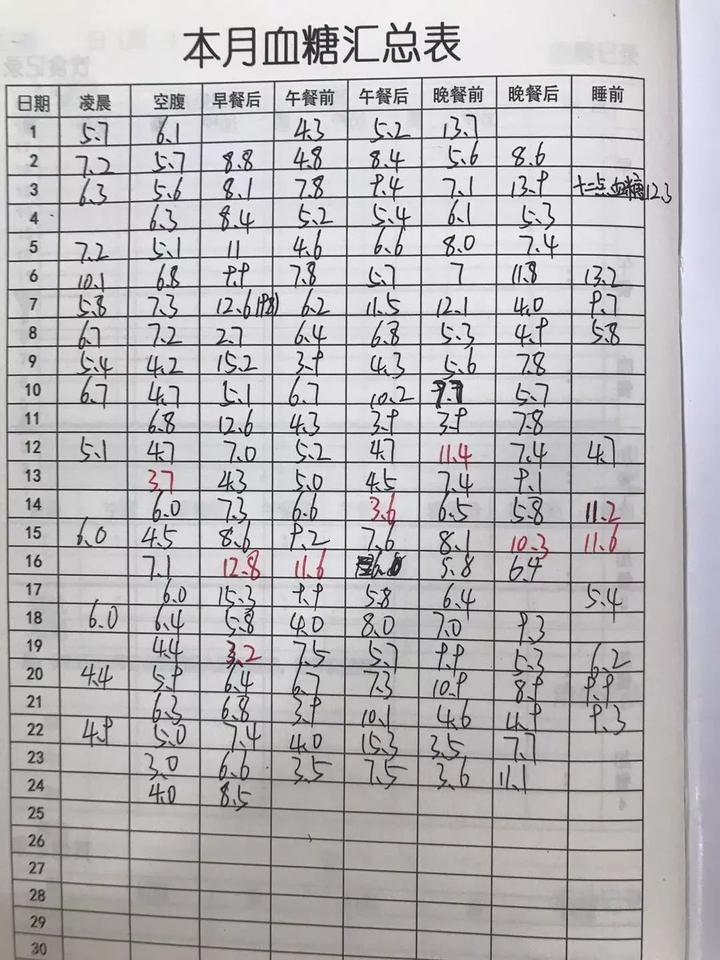 本月血糖汇总表
日期 凌晨 空腹 早餐后 午餐前 午餐后 晚餐前 晚餐后 睡前
1 5.7 6.1 4.3 5.2 13.7
2 7.2 5.7 8.8 4.8 8.4 5.6 8.6
3 6.3 5.6 8.1 7.8 9.4 7.1 13.9 十二点血糖12.3
4 6.3 8.4 5.2 5.4 6.1 5.3
5 7.2 5.1 11 4.6 6.6 8.0 7.4
6 10.1 6.8 9.9 7.8 5.7 7 11.8 13.2
7 5.8 7.3 12.6(9.8) 6.2 11.5 12.1 4.0 9.7
8 6.7 7.2 2.7 6.4 6.8 5.3 4.9 5.8
9 5.4 4.2 15.2 3.9 4.3 5.6 7.8
10 6.7 4.7 5.1 6.7 10.2 5.7
11 6.8 12.6 4.3 3.9 3.9 7.8
12 5.1 4.7 7.0 5.2 4.7 11.4 7.4 4.7
13 3.7 4.3 5.0 4.5 7.4 9.1
14 6.0 7.3 6.6 3.6 6.5 5.8 11.2
15 6.0 4.5 8.6 9.2 7.6 8.1 10.3 11.6
16 7.1 12.8 11.6 5.8 6.4
17 6.0 15.3 9.9 5.8 6.4 5.4
18 6.0 6.4 5.8 4.0 8.0 7.0 9.3
19 4.4 3.2 7.5 5.7 9.9 5.3 6.2
20 4.4 5.9 6.4 6.7 7.3 10.9 8.9 9.9
21 6.3 6.8 3.9 10.1 4.6 4.9 9.3
22 4.9 5.0 7.4 4.0 15.3 3.5 7.7
23 3.0 6.6 3.5 7.5 3.6 11.1
24 4.0 8.5
25
26
27
28
29
30